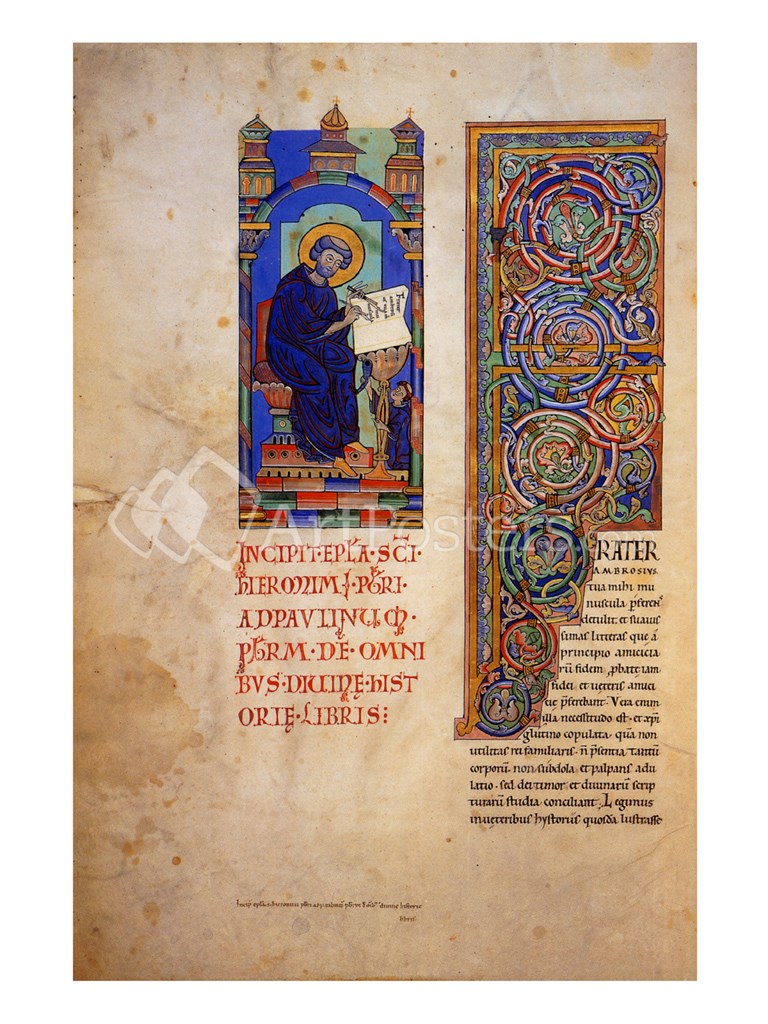 INCIPIT·EPL̅A·SC̅I·
HIERONIMI·PBR̅I·
AD PAVLINUM·
PBR̅M·DE·OMNI
BVS·DIVINĘ·HIST
ORIĘ·LIBRIS:
FRATER
AMBROSIVS
tua mihi mu
nuscula p̅feren̅s
detulit et suauis
simas litteras que a
principio amicicia
rū fidem ꝓbatę iam
fidei et ueteris amici
cię p̅ferebant· Vera enim
illa necessitudo est· et xp̅i
glutino copulata· qua non
utilitas rei familiaris· n̅ p̅sentia tantū
corporū· non subdola et palpans adu
latio· sed dei timor et diuinarū scrip
turarū studia conciliant· Legimus
in ueteribus hystoriis quosdā lustrasse
ArtPosters